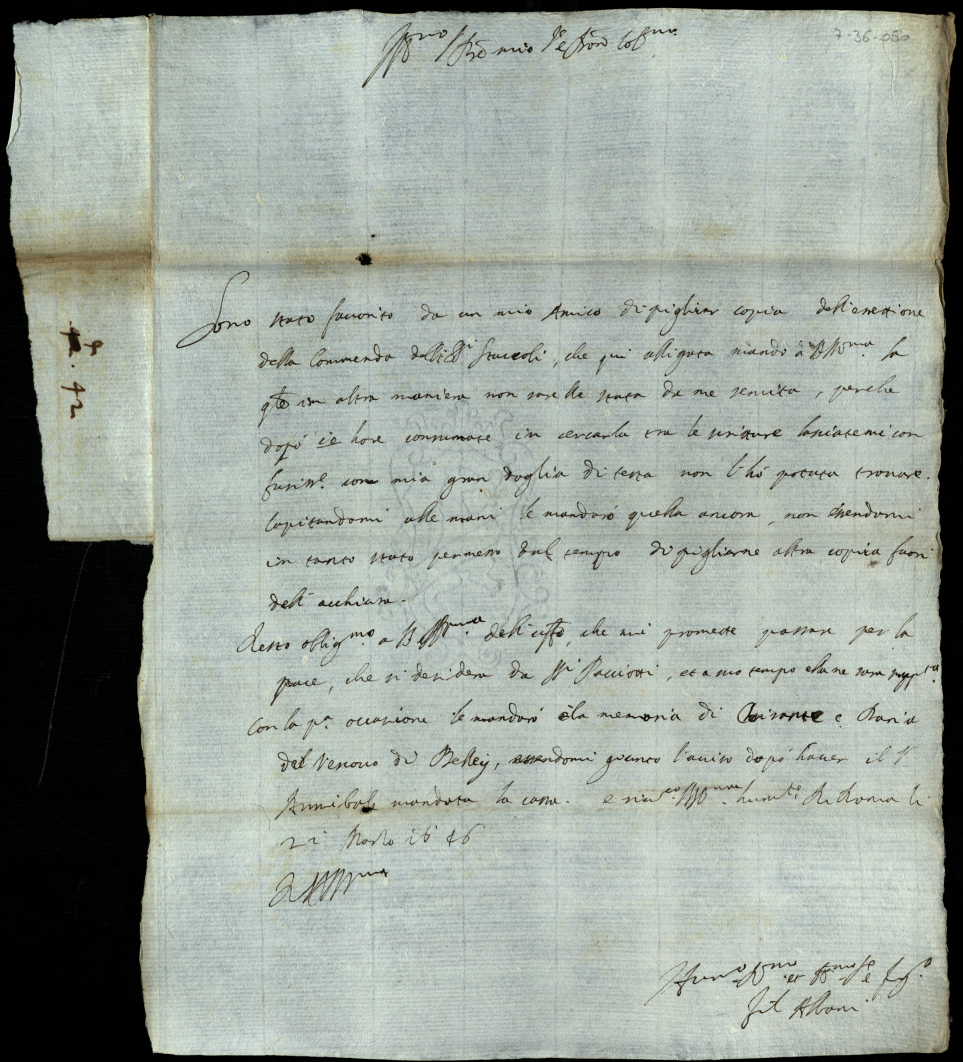 7-36-050
Sig.re mio Sig.re e Pron Col.mo
Sono stato favorito da un mio Amico di pigliar copia dell'erettione
della Commenda delli SS.ri Staccoli, che qui alligata mando à V.S. Ill.ma la
q.le in altra maniera non sarebbe stata da me servita, perche
dopò i e hore consumate in cercarla tra le scritture lasciatemi con
fusim.e con mia gran doglia di testa non l'hò potuta trovare.
Capitandomi alle mani le mandarò quella ancora, non essendomi
in tanto stato permesso dal tempo di pigliarne altra copia fuori
dell' acchiusa.
Resto oblig.mo a V.S. Ill.ma dell'uff.o, che mi promette passare per la
pace, che si desidera da SS.ri Pacciotti, et a suo tempo ella ne sarà
Con la p.a occasione le mandarò la memoria di e Dania
del Vescovo di Belley, essendomi giunto l'aviso dopò haver il S.r
Annibale mandata la cassa. e V.S. Ill.ma humil.te Di Roma li
21 Marzo 1646
D V.S. Ill.ma
et Ser.re
Albani